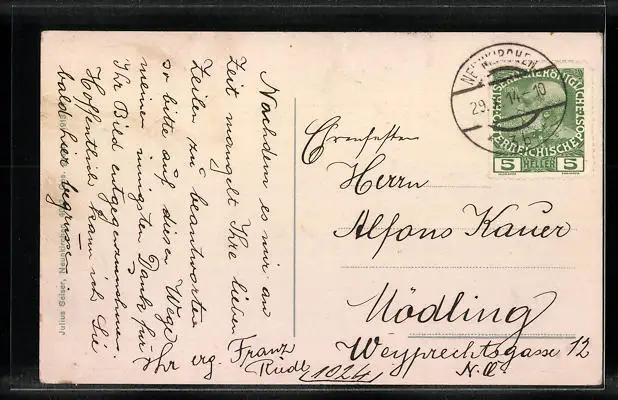 Nachdem es mir an
Zeit mangelt Ihre lieben
Zeilen zu beantworten
so bitte auf diesem Wege
meinen innigsten Dank für
Ihr Bild entgegenzunehmen.
Hoffentlich kann ich Sie
bald hier begrüßen
Ihr erg. Franz
Riedl
(1024)
Ehrenfesten
Herrn
Alfons Kauer
Mödling
Weyprechtsgasse 12
N.Ö.
NEUNKIRCHEN
29. 14 10
KAISERLICHE KÖNIGLICHE
ÖSTERREICHISCHE POST
5 HELLER 5
Julius Selser, Neunkirchen